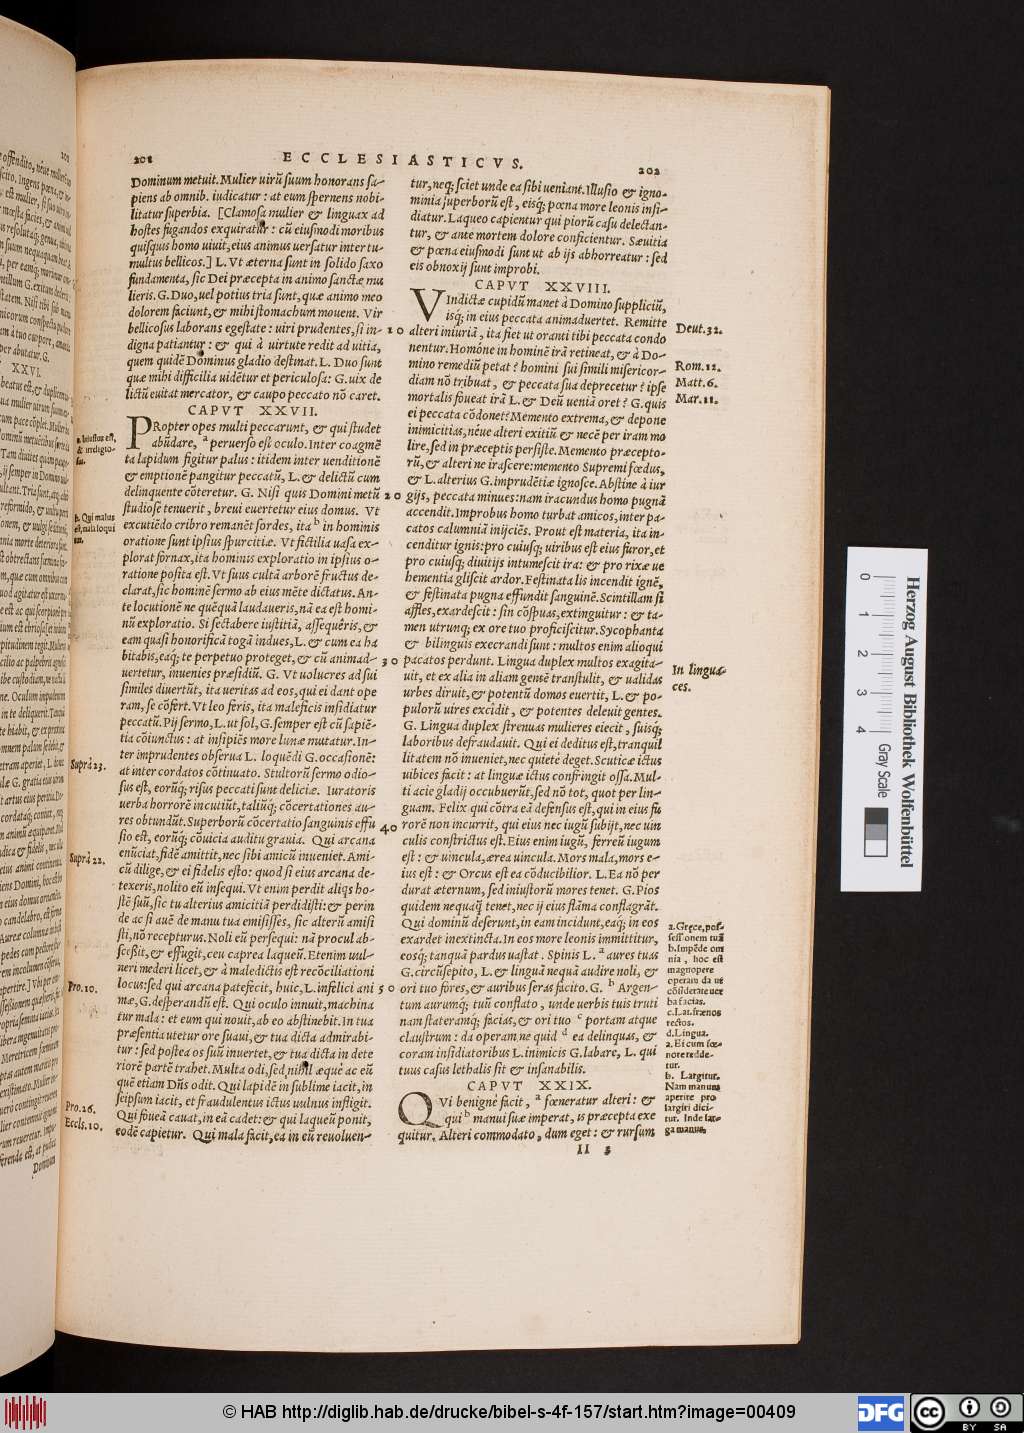 201
ECCLESIASTICVS.
202
Dominum metuit. Mulier uirũ suum honorans sa-
piens ab omnib. iudicatur: at eum spernens nobi-
litatur superbia. [Clamosa mulier & linguax ad
hostes fugandos exquiratur: cũ eiusmodi moribus
quisquis homo uiuit, eius animus uersatur inter tu-
multus bellicos.] L. Vt æterna sunt in solido saxo
fundamenta, sic Dei præcepta in animo sanctæ mu
lieris. G. Duo, uel potius tria sunt, quæ animo meo
dolorem faciunt, & mihi stomachum mouent. Vir
bellicosus laborans egestate: uiri prudentes, si in-
digna patiantur: & qui à uirtute redit ad uitia,
quem quidẽ Dominus gladio destinat. L. Duo sunt
quæ mihi difficilia uidẽtur et periculosa: G. uix de
lictũ euitat mercator, & caupo peccato nõ caret.
CAPVT XXVII.
PRopter opes multi peccarunt, & qui studet
abũdare, a peruerso est oculo. Inter coagmẽ
ta lapidum figitur palus: itidem inter uenditionẽ
& emptionẽ pangitur peccatũ, L. & delictũ cum
delinquente cõteretur. G. Nisi quis Domini metũ
studiosè tenuerit, breui euertetur eius domus. Vt
excutiẽdo cribro remanẽt sordes, ita b in hominis
oratione sunt ipsius spurcitiæ. Vt fictilia uasa ex-
plorat fornax, ita hominis exploratio in ipsius o-
ratione posita est. Vt suus cultũ arborẽ fructus de-
clarat, sic hominẽ sermo ab eius mẽte dictatus. An-
te locutionẽ ne quẽquã laudaueris, nã ea est homi-
nũ exploratio. Si sectabere iustitiã, assequêris, &
eam quasi honorificã togã indues, L. & cum ea ha
bitabis, eaq́; te perpetuo proteget, & cũ animad-
uertetur, inuenies præsidiũ. G. Vt uolucres ad sui
similes diuertũt, ita ueritas ad eos, qui ei dant ope
ram, se cõfert. Vt leo feris, ita maleficis insidiatur
peccatũ. Pij sermo, L. ut sol, G. semper est cũ sapiẽ-
tia cõiunctus: at insipiẽs more lunæ mutatur. In-
ter imprudentes obserua L. loquẽdi G. occasionẽ:
at inter cordatos cõtinuato. Stultorũ sermo odio-
sus est, eorũq́; risus peccati sunt deliciæ. Iuratoris
uerba horrorẽ incutiũt, taliũq́; cõcertationes au-
res obtundũt. Superborũ cõcertatio sanguinis effu
sio est, eorũq́; cõuicia auditu grauia. Qui arcana
enũciat, fidẽ amittit, nec sibi amicũ inueniet. Ami-
cũ dilige, & ei fidelis esto: quod si eius arcana de-
texeris, nolito eũ insequi. Vt enim perdit aliqs ho-
stẽ suũ, sic tu alterius amicitiã perdidisti: & perin
de ac si auẽ de manu tua emisisses, sic alterũ amisi
sti, nõ recepturus. Noli eũ persequi: nã procul ab-
scessit, & effugit, ceu caprea laqueũ. Etenim uul-
neri mederi licet, & à maledictis est recõciliationi
locus: sed qui arcana patefecit, huic, L. infelici ani
mæ, G. desperandũ est. Qui oculo innuit, machina
tur mala: et eum qui nouit, ab eo abstinebit. In tua
præsentia utetur ore suaui, & tua dicta admirabi-
tur: sed postea os suũ inuertet, & tua dicta in dete
riorẽ partẽ trahet. Multa odi, sed nihil æque ac eũ
quẽ etiam Dñs odit. Qui lapidẽ in sublime iacit, in
seipsum iacit, et fraudulentus ictus uulnus infliget.
Qui foueã cauat, in eã cadet: & qui laqueũ ponit,
eodẽ capietur. Qui mala facit, ea in eũ reuoluen-
a. Iniustus est,
& irreligio-
sus.
b. Qui malus
est, mala loqui
tur.
Suprà 23.
Suprà 22.
Pro. 10.
Pro. 26.
Eccls. 10.
10
20
30
40
50
tur, neq́; sciet unde ea sibi ueniant. Illusio & igno-
minia superborũ est, eisq́; pœna more leonis insi-
diatur. Laqueo capientur qui piorũ casu delectan-
tur, & ante mortem dolore conficientur. Sæuitia
& pœna eiusmodi sunt ut ab ijs abhorreatur: sed
eis obnoxij sunt improbi.
CAPVT XXVIII.
VIndictæ cupidũ manet à Domino suppliciũ,
isq́; in eius peccata animaduertet. Remitte
alteri iniuriã, ita fiet ut oranti tibi peccata condo
nentur. Homóne in hominẽ irã retineat, & à Do-
mino remediũ petat? homini sui simili misericor-
diam nõ tribuat, & peccata sua deprecetur? ipse
mortalis foueat irã L. & Deũ ueniã oret? G. quis
ei peccata cõdonet? Memento extrema, & depone
inimicitias, néue alteri exitiũ & necẽ per iram mo
lire, sed in præceptis persiste. Memento præcepto-
rũ, & alteri ne irascere: memento Supremi fœdus,
& L. alterius G. imprudẽtiæ ignosce. Abstine à iur
gijs, peccata minues: nam iracundus homo pugnã
accendit. Improbus homo turbat amicos, inter pa-
catos calumniã inijciẽs. Prout est materia, ita in-
cenditur ignis: pro cuiusq́; uiribus est eius furor, et
pro cuiusq́; diuitijs intumescit ira: & pro rixæ ue
hementia gliscit ardor. Festinata lis incendit ignẽ,
& festinata pugna effundit sanguinẽ. Scintillam si
affles, exardescit: sin cõspuas, extinguitur: & ta-
men utrunq́; ex ore tuo proficiscitur. Sycophanta
& bilinguis execrandi sunt: multos enim alioqui
pacatos perdunt. Lingua duplex multos exagita-
uit, et ex alia in aliam gentẽ transtulit, & ualidas
urbes diruit, & potentũ domos euertit, L. & po-
pulorũ uires excidit, & potentes deleuit gentes.
G. Lingua duplex strenuas mulieres eiecit, suisq́;
laboribus defraudauit. Qui ei deditus est, tranquil
litatem nõ inueniet, nec quietè deget. Scuticæ ictus
uibices facit: at linguæ ictus confringit ossa. Mul-
ti acie gladij occubuerũt, sed nõ tot, quot per lin-
guam. Felix qui cõtra eã defensus est, qui in eius fu
rorẽ non incurrit, qui eius nec iugũ subijt, nec uin
culis constrictus est. Eius enim iugũ, ferreũ iugum
est: & uincula, ærea uincula. Mors mala, mors e-
ius est: & Orcus est ea cõducibilior. L. Ea nõ per
durat æternum, sed iniustorũ mores tenet. G. Pios
quidem nequaq̃ tenet, nec ij eius flãma conflagrãt.
Qui dominũ deserunt, in eam incidunt, eaq́; in eos
exardet inextincta. In eos more leonis immittitur,
eosq́; tanquã pardus uastat. Spinis L. a aures tuas
G. circũsepito, L. & linguã nequã audire noli, &
ori tuo fores, & auribus seras facito. G. b Argen-
tum aurumq́; tuũ conflato, unde uerbis tuis truti
nam stateramq́; facias, & ori tuo c portam atque
claustrum: da operam ne quid d ea delinquas, &
coram insidiatoribus L. inimicis G. labare, L. qui
tuus casus lethalis sit & insanabilis.
CAPVT XXIX.
QVi benignè facit, a fœneratur alteri: &
qui b manu suæ imperat, is præcepta exe
quitur. Alteri commodato, dum eget: & rursum
II 3
Deut. 32.
Rom. 12.
Matt. 6.
Mar. 11.
In lingua-
ces.
a. Græce, pos-
sessionem tuã
b. Impẽde om
nia, hoc est
magnopere
operam da ut
cõsideratè uer
ba facias.
c. Lat. frænos
rectos.
d. Lingua.
a. Ei cum fœ-
nore redde-
tur.
b. Largitur.
Nam manum
aperire pro
largiri dici-
tur. Inde lar-
ga manus.
Herzog August Bibliothek Wolfenbüttel
0 1 2 3 4
Gray Scale
© HAB http://diglib.hab.de/drucke/bibel-s-4f-157/start.htm?image=00409
DFG
cc
BY SA